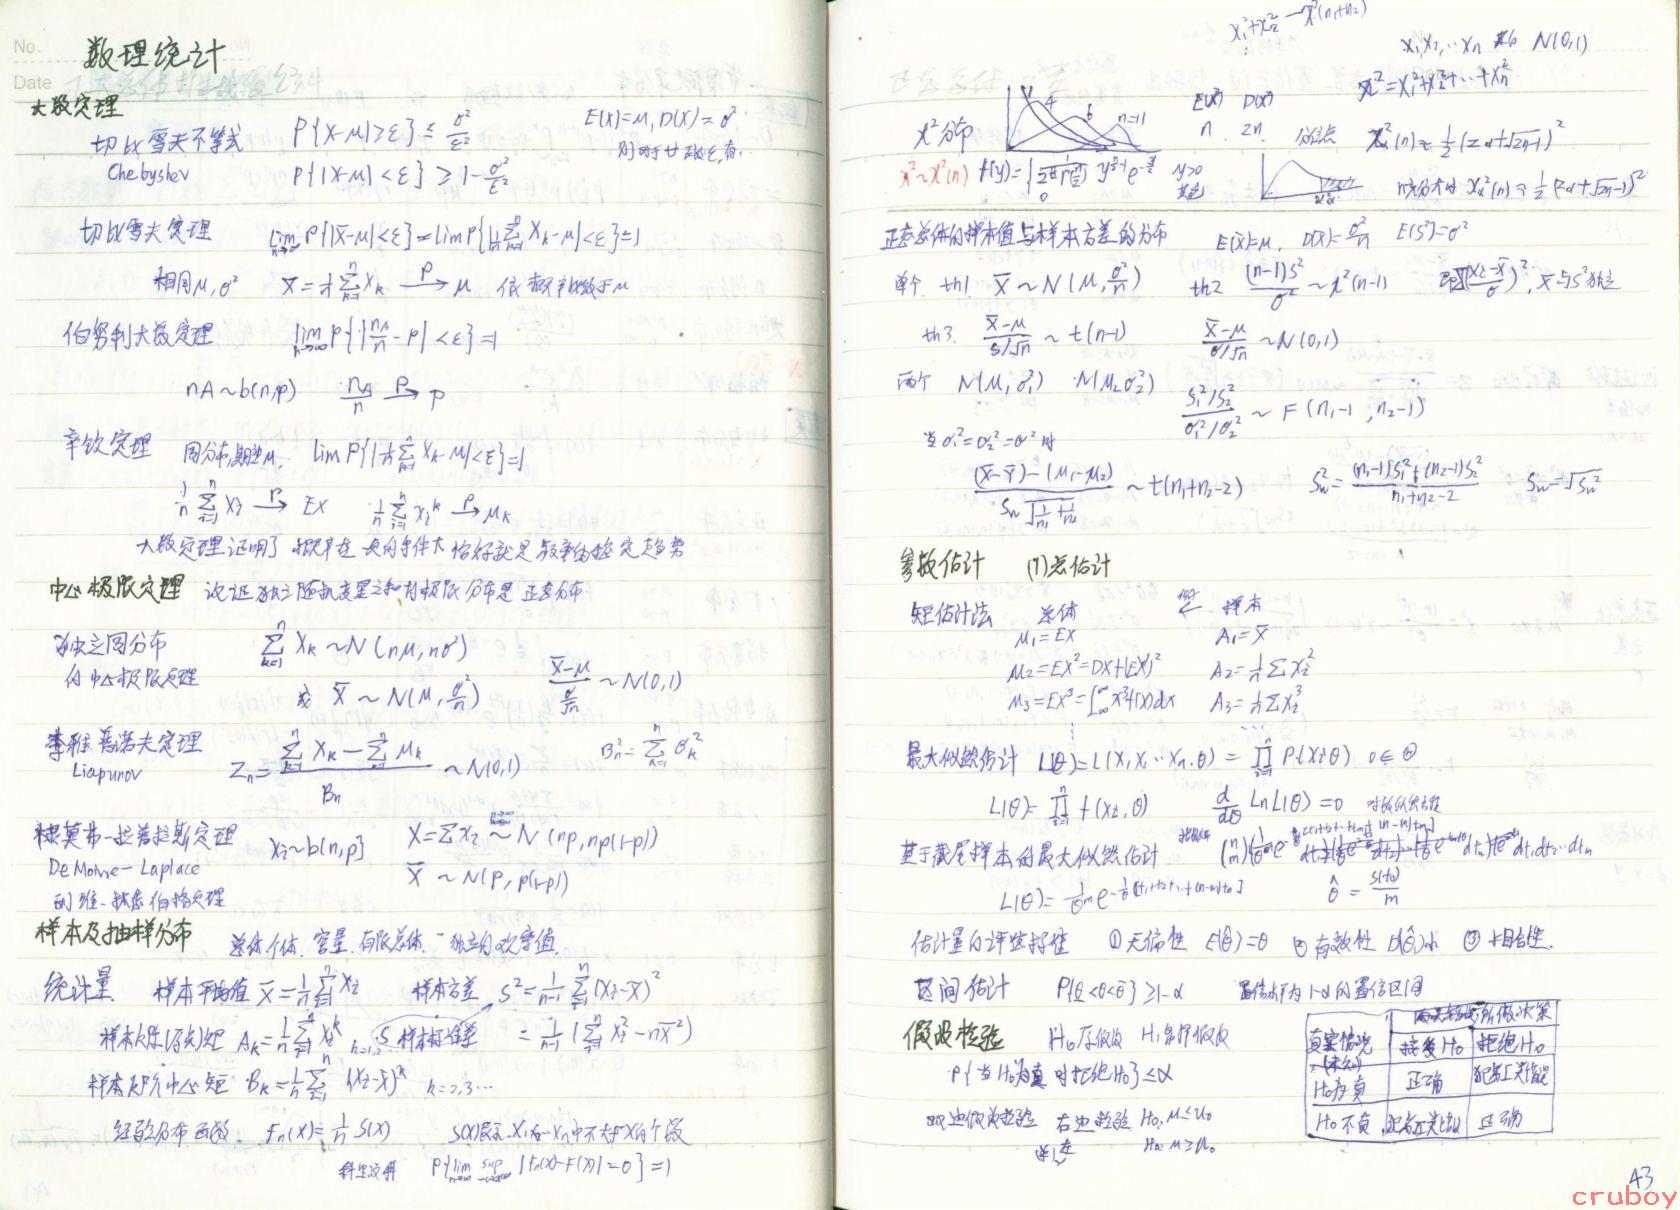 No.
Date
数理统计
大数定理
切比雪夫不等式 P{|X-μ|≥ε} ≤ σ²/ε² E(X)=μ, D(X)=σ²
Chebyshev P{|X-μ|<ε} ≥ 1-σ²/ε²
切比雪夫定理 lim n→∞ P{|X̄-μ|<ε} = lim P{|1/n Σ Xk-μ|<ε}=1
相同μ,σ² X̄=1/n Σ Xk →P μ 依概率收敛于μ
伯努利大数定理 lim n→∞ P{|nA/n - P|<ε}=1
nA~b(n,p) nA/n →P p
辛钦定理 同分布,期望μ, lim P{|1/n Σ Xk-μ|<ε}=1
1/n Σ Xi →P EX 1/n Σ Xi^k →P μk
大数定理证明了概率在
中心极限定理 论证独立随机变量之和的极限分布是正态分布
独立同分布 Σ Xk ~ N(nμ, nσ²)
的中心极限定理 或 X̄ ~ N(μ, σ²/n) (X̄-μ)/(σ/√n) ~ N(0,1)
李雅普诺夫定理 Zn = (Σ Xk - Σ μk)/Bn ~ N(0,1) Bn² = Σ σk²
Liapunov
棣莫弗-拉普拉斯定理 Xi~b(n,p) X=ΣXi ~ N(np, np(1-p))
De Moivre-Laplace X̄ ~ N(p, p(1-p))
样本及抽样分布 总体.个体.容量.有限总体. 独立的观察值
统计量 样本平均值 X̄=1/n Σ Xi 样本方差 S²=1/(n-1) Σ(Xi-X̄)²
样本k阶(原点)矩 Ak=1/n Σ Xi^k k=1,2 S 样本标准差 =1/(n-1) (Σ Xi²-nX̄²)
样本k阶中心矩 Bk=1/n Σ (Xi-X̄)^k k=2,3…
经验分布函数 Fn(x)=1/n S(x) S(x)表示X1…Xn中不大于X的个数
格里汶科 P{lim n→∞ sup |Fn(x)-F(x)|=0}=1
X1²+X2² ~ χ²(n1+n2)
X1,X2,…Xn N(0,1)
χ²=X1²+X2²+…+Xn²
χ²分布 4 6 n=11 E(χ²) D(χ²)
n 2n 分位点 χα²(n)≈1/2(zα+√(2n-1))²
χ²~χ²(n) f(y)={1/(2^(n/2)Γ(n/2)) y^(n/2-1) e^(-y/2) y>0
0 其他 n充分大时 χα²(n)≈1/2(zα+√(2n-1))²
正态总体的样本值与样本方差的分布 E(X̄)=μ, D(X̄)=σ²/n E(S²)=σ²
单个 th1 X̄~N(μ,σ²/n) th2 (n-1)S²/σ² ~ χ²(n-1) X̄与S²独立
th3. (X̄-μ)/(S/√n) ~ t(n-1) (X̄-μ)/(σ/√n) ~ N(0,1)
两个 N(μ1,σ1²) N(μ2,σ2²) (S1²/S2²)/(σ1²/σ2²) ~ F(n1-1, n2-1)
当σ1²=σ2²=σ²时
((X̄-Ȳ)-(μ1-μ2))/(Sw√(1/n1+1/n2)) ~ t(n1+n2-2) Sw²=((n1-1)S1²+(n2-1)S2²)/(n1+n2-2) Sw=√Sw²
参数估计 (1)点估计
矩估计法 总体 样本
μ1=EX A1=X̄
μ2=EX²=DX+(EX)² A2=1/n ΣXi²
μ3=EX³=∫x³f(x)dx A3=1/n ΣXi³
最大似然估计 L(θ)=L(X1,X2…Xn,θ)=Π P(Xi,θ) θ∈Θ
L(θ)=Π f(Xi,θ) d/dθ Ln L(θ)=0 对数似然方程
基于截尾样本的最大似然估计
L(θ)=1/θ^m e^(-1/θ[t1+t2+…+(n-m)t0]) θ̂=S(t0)/m
估计量的评选标准 ①无偏性 E(θ̂)=θ ②有效性 D(θ̂)小 ③相合性.
区间估计 P{θ<θ<θ}≥1-α 置信水平为1-α的置信区间
假设检验 H0原假设 H1备择假设
P{当H0为真时拒绝H0}≤α
双边假设检验 右边检验 H0,μ≤μ0
左 H0:μ≥μ0
真实情况 所做决策
(未知) 接受H0 拒绝H0
H0为真 正确 犯第I类错误
H0不真 犯第II类错误 正确
43
cruboy